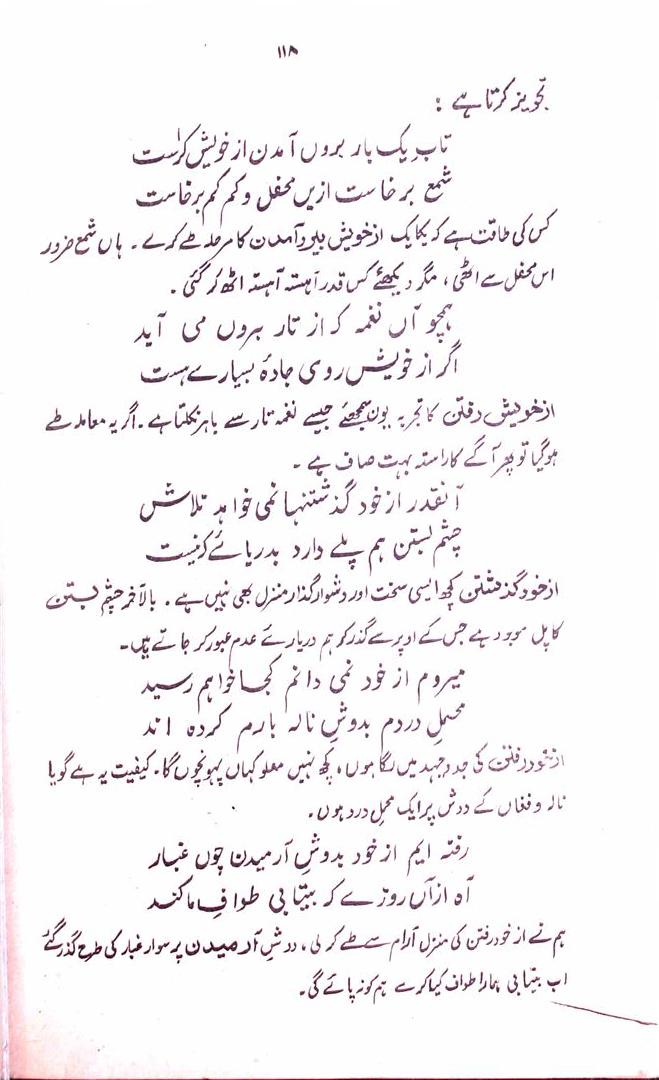 ۱۱۸
تجویز کرتا ہے :
تابِ یک بار بروں آمدن از خویش کراست
شمع برخاست ازیں محفل و کم کم برخاست
کس کی طاقت ہے کہ یکایک از خویش بیروں آمدن کا مرحلہ طے کرے ۔ ہاں شمع ضرور
اس محفل سے اٹھی ، مگر دیکھئے کس قدر آہستہ آہستہ اٹھ کر گئی ۔
ہمچو آں نغمہ کہ از تار بروں می آید
اگر از خویش روی جادۂ بسیارے ہست
از خویش رفتن کا تجربہ یوں سمجھئے جیسے نغمہ تار سے باہر نکلتا ہے ۔ اگر یہ معاملہ طے
ہو گیا تو پھر آگے کا راستہ بہت صاف ہے ۔
آنقدر از خود گذشتنہا نمی خواہد تلاش
چشم بستن ہم پلے دارد بدریائے کہ نیست
از خود گذشتن کچھ ایسی سخت اور دشوار گذار منزل بھی نہیں ہے ۔ بالآخر چشم بستن
کا پل موجود ہے جس کے اوپر سے گذر کر ہم دریائے عدم عبور کر جاتے ہیں۔
میروم از خود نمی دانم کجا خواہم رسید
محملِ دردم بدوشِ نالہ بارم کردہ اند
از خود رفتن کی جدوجہد میں لگا ہوں ، کچھ نہیں معلوم کہاں پہونچوں گا۔ کیفیت یہ ہے گویا
نالہ و فغاں کے دوش پر ایک محملِ درد ہوں ۔
رفتہ ایم از خود بدوشِ آرمیدن چوں غبار
آہ ازآں روزے کہ بیتابی طوافِ ما کند
ہم نے از خود رفتن کی منزل آرام سے طے کر لی ، دوشِ آرمیدن پر سوار غبار کی طرح گذر گئے
اب بیتابی ہمارا طواف کیا کرے ہم کو نہ پائے گی ۔